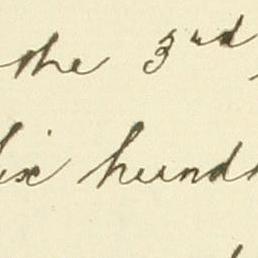 the 3rd
ix hund